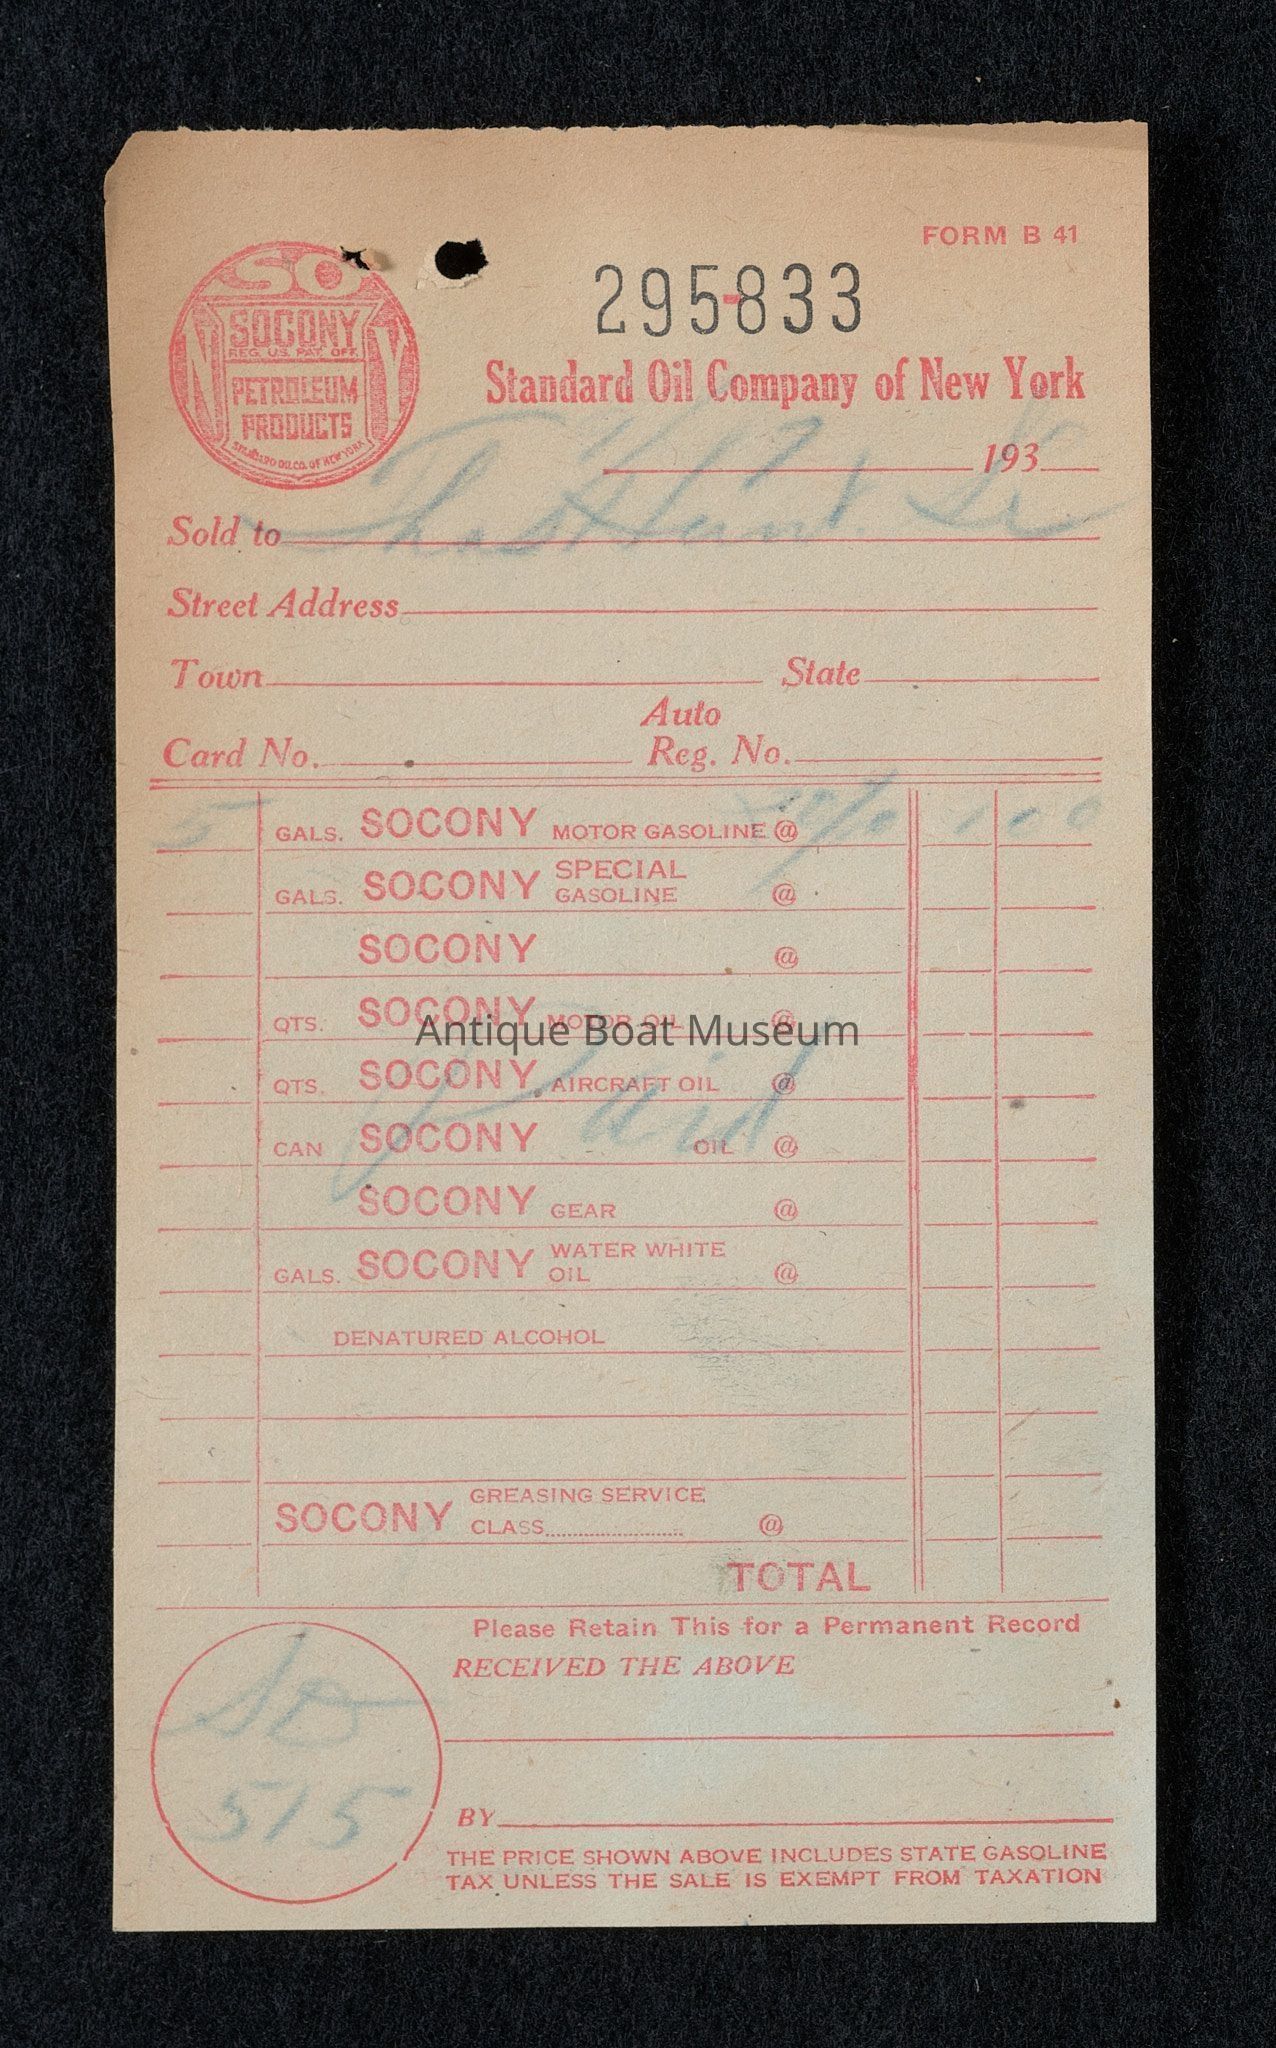 FORM B 41
SO
SOCONY
REG. U.S. PAT. OFF.
PETROLEUM
PRODUCTS
STANDARD OIL CO. OF NEW YORK
295-833
Standard Oil Company of New York
193
Sold to Thos Hunt.
Street Address
Town State
Auto
Card No. Reg. No.
5 GALS. SOCONY MOTOR GASOLINE @ 1 00
GALS. SOCONY SPECIAL GASOLINE @
SOCONY @
QTS. SOCONY MOTOR OIL @
Antique Boat Museum
QTS. SOCONY AIRCRAFT OIL @
Paid
CAN SOCONY OIL @
SOCONY GEAR @
GALS. SOCONY WATER WHITE OIL @
DENATURED ALCOHOL
SOCONY GREASING SERVICE
CLASS @
TOTAL
Please Retain This for a Permanent Record
RECEIVED THE ABOVE
515
BY
THE PRICE SHOWN ABOVE INCLUDES STATE GASOLINE
TAX UNLESS THE SALE IS EXEMPT FROM TAXATION